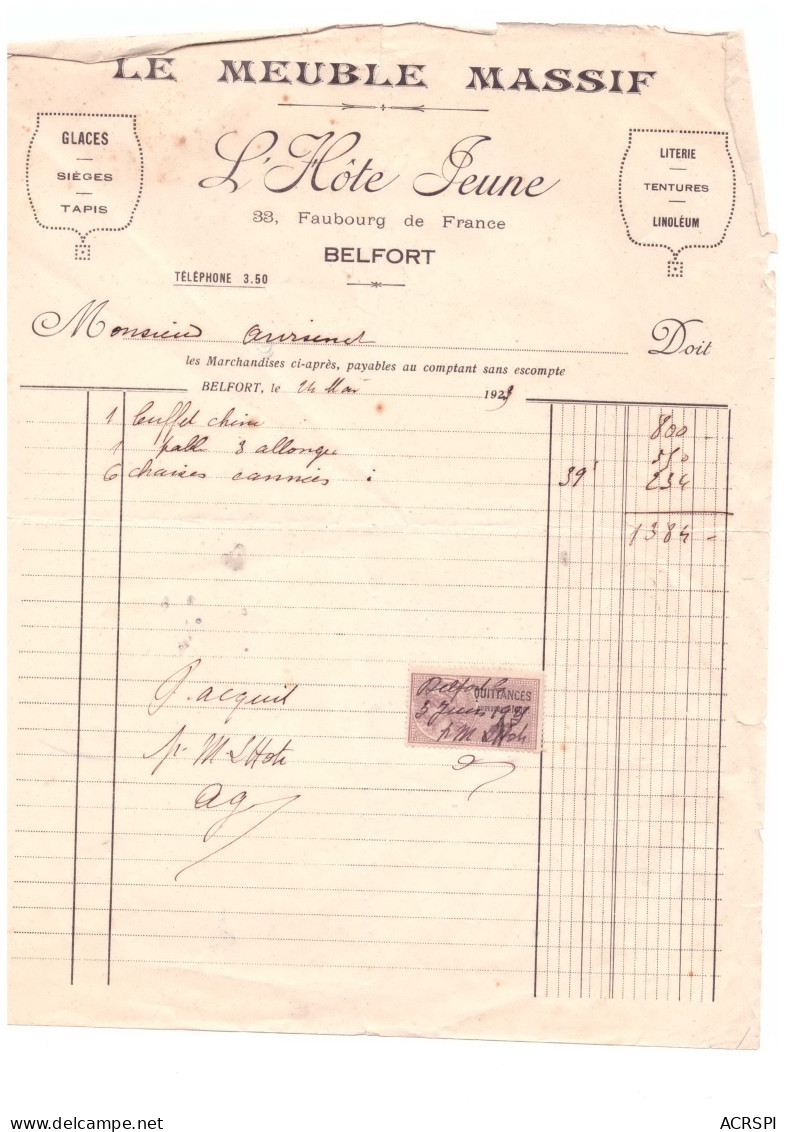 LE MEUBLE MASSIF
GLACES
SIÈGES
TAPIS
LITERIE
TENTURES
LINOLÉUM
L'Hôte Jeune
33, Faubourg de France
BELFORT
TÉLÉPHONE 3.50
Monsieur Doit
les Marchandises ci-après, payables au comptant sans escompte
BELFORT, le 24 Mai 1923
1 buffet 800 -
1 3 allonges 350
6 chaises cannées : 39 234
1384 -
P. acquit
pr M L'Hote
ag
QUITTANCES
Belfort le
3 Juin 19
pr M L'Hote
ACRSPI